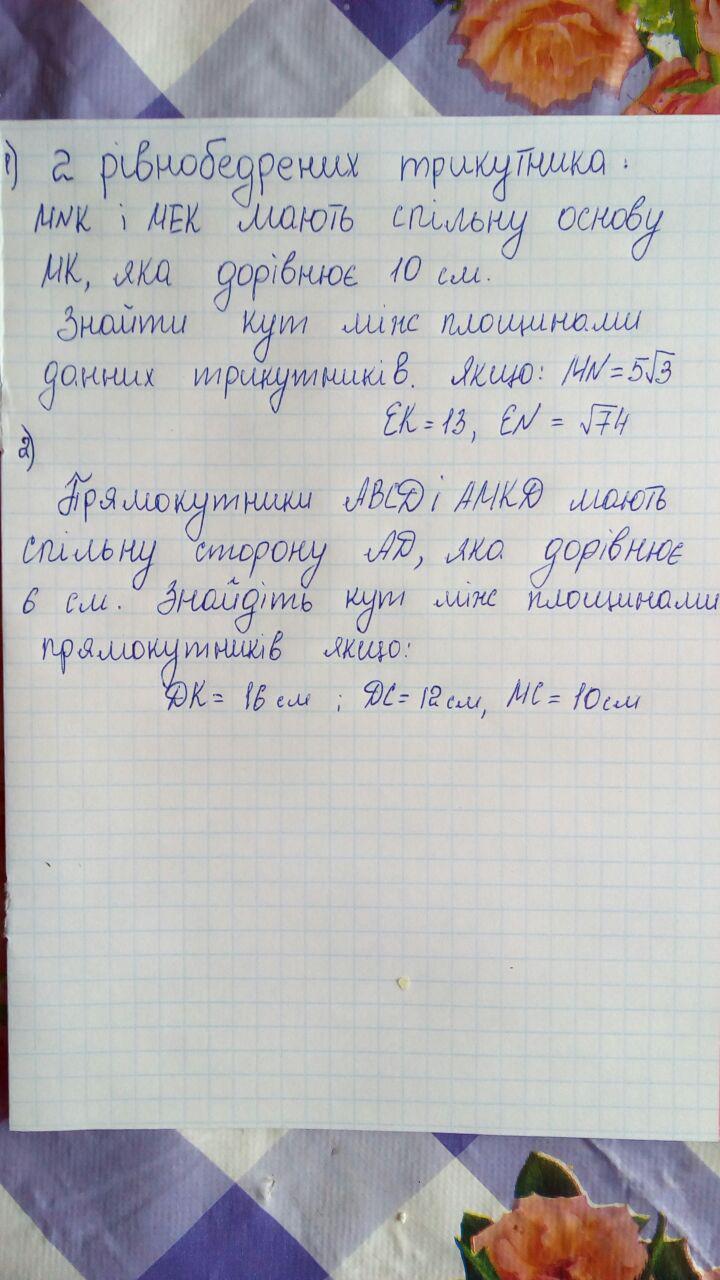 1) 2 рівнобедрених трикутника:
MNK і MEK мають спільну основу
MK, яка дорівнює 10 см.
Знайти кут між площинами
данних трикутників. якщо: MN=5√3
EK=13, EN = √74
2)
Прямокутники ABCD і AMKD мають
спільну сторону AD, яка дорівнює
6 см. Знайдіть кут між площинами
прямокутників якщо:
DK= 16 см ; DC=12см, MC=10см